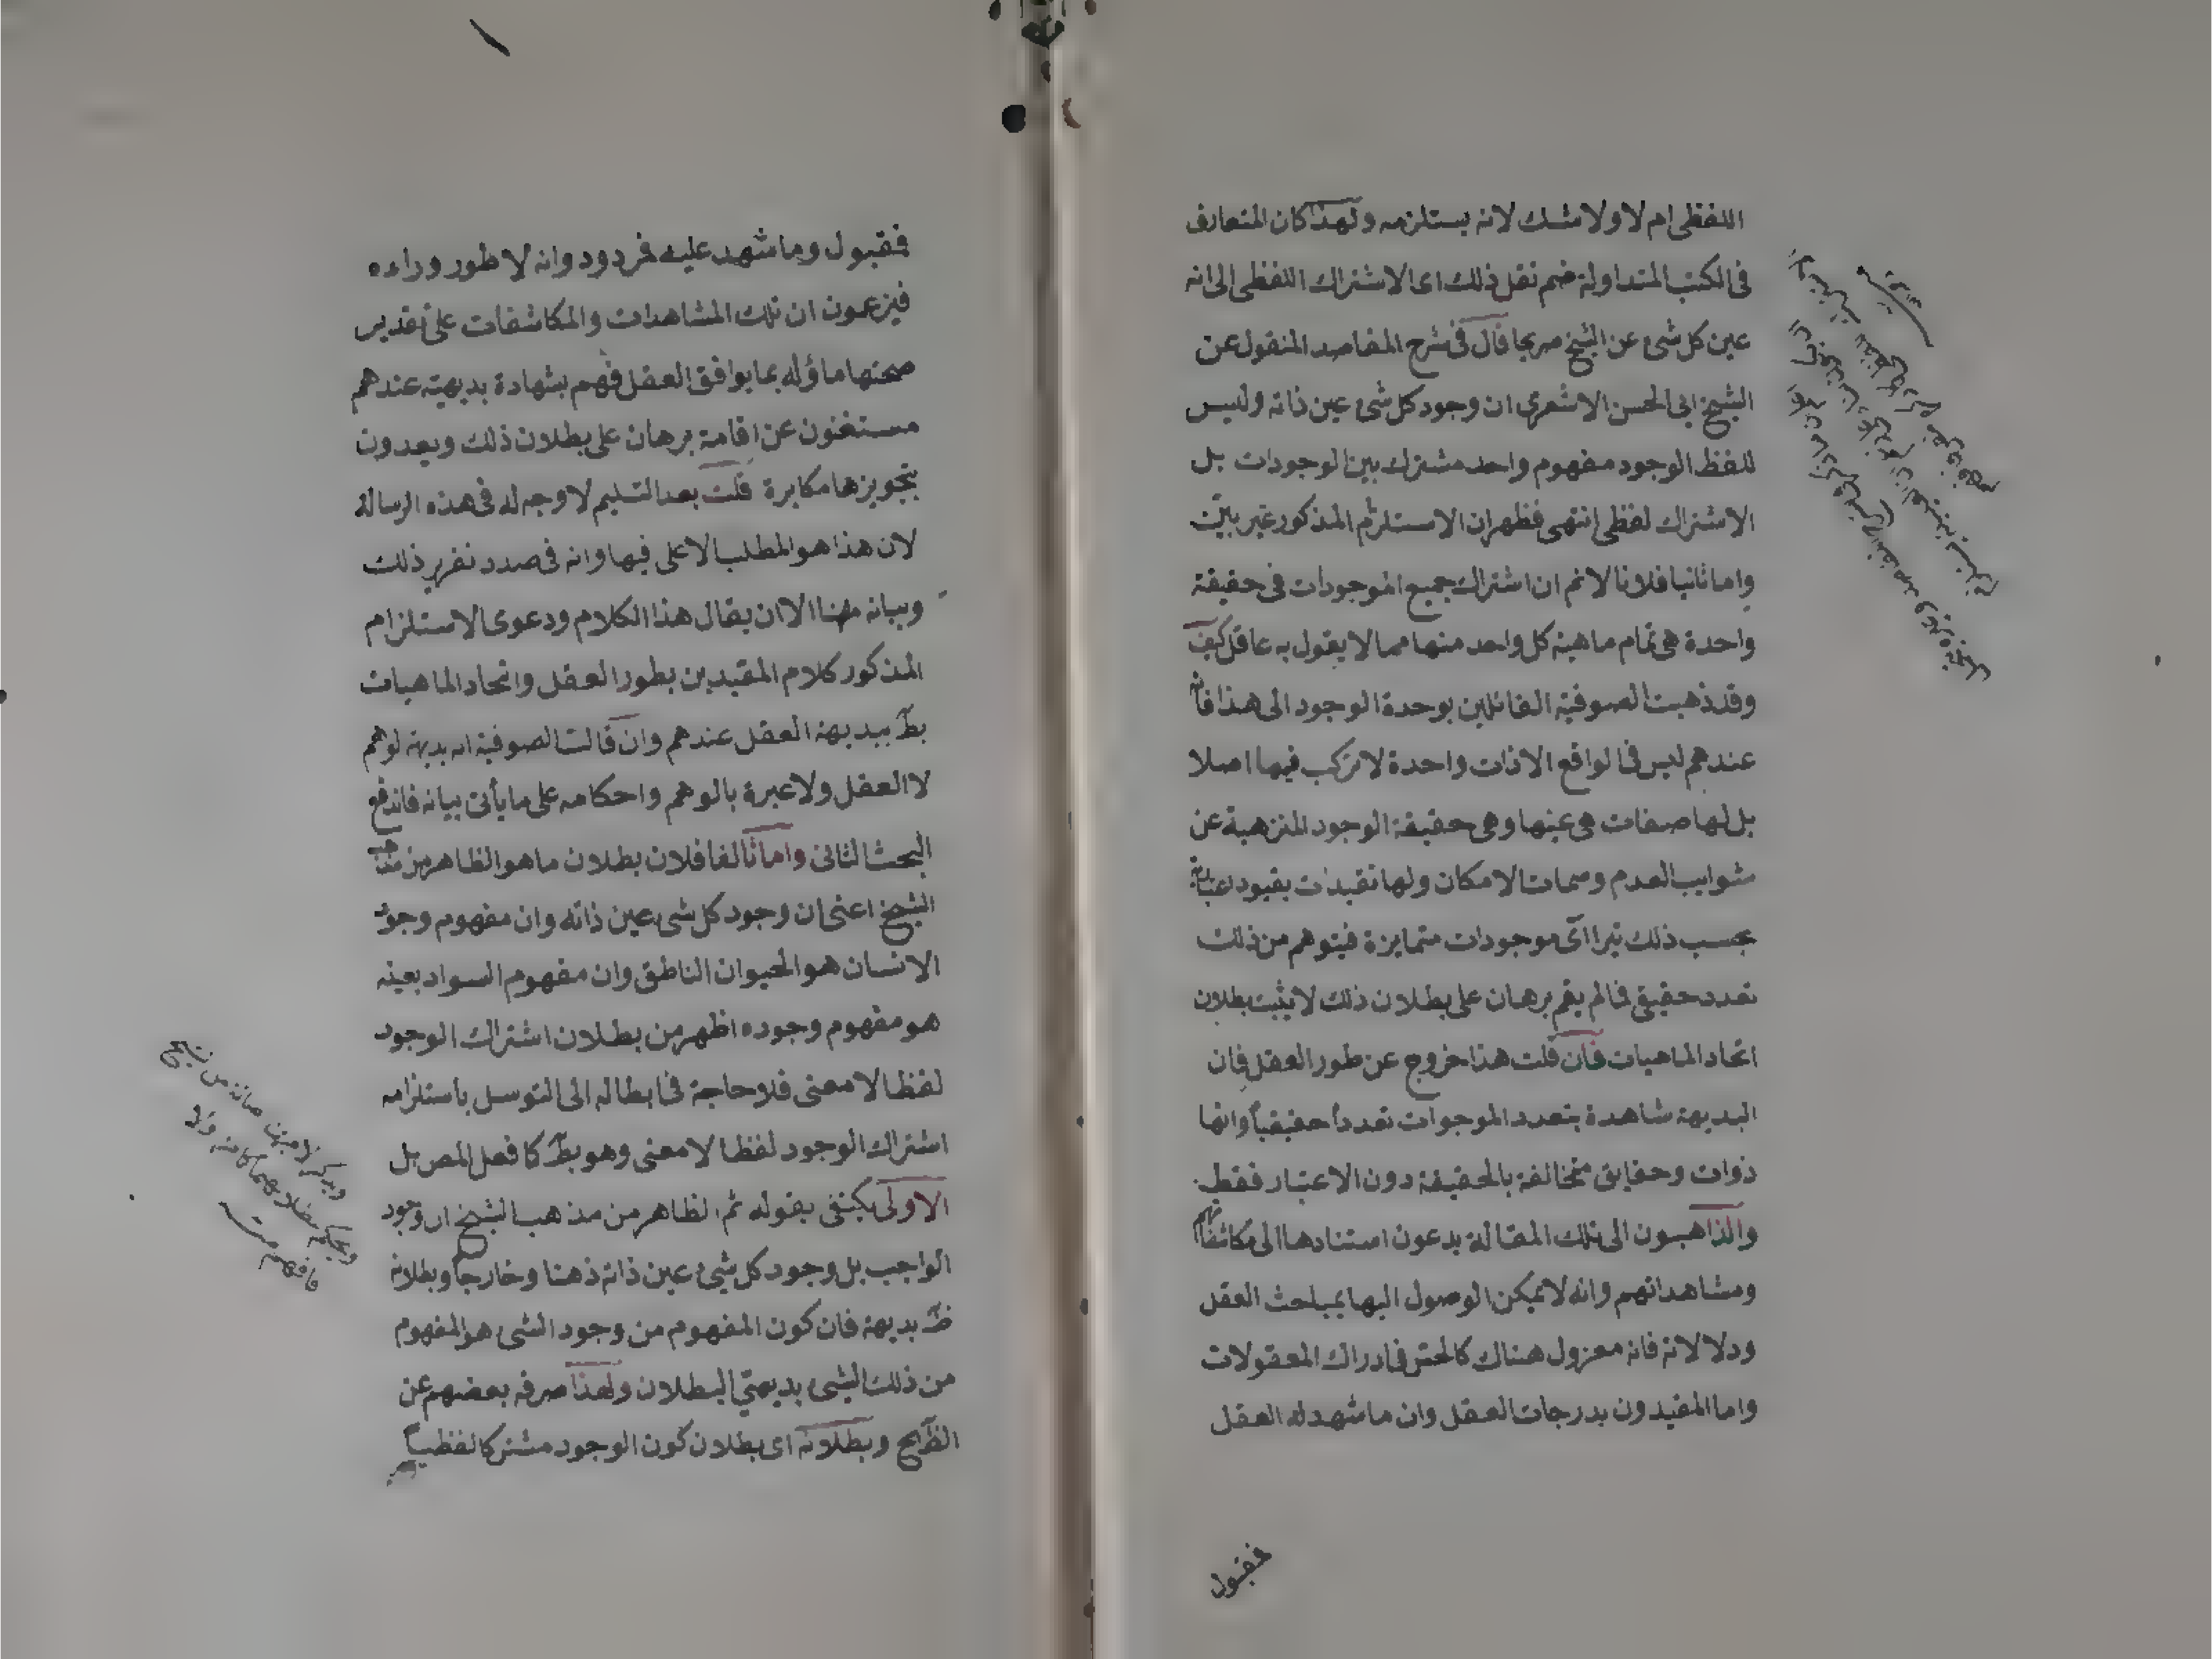 اللفظى ام لا ولا شك لانه يستلزمه ولهذا كان المتعارف
فى الكتب المتداولة ضم نقل ذلك اى الاشتراك اللفظى الى انه
عين كل شئ عن الشيخ صريحا قال فى شرح المقاصد المنقول عن
الشيخ ابى الحسن الاشعرى ان وجود كل شئ عين ذاته وليس
للفظ الوجود مفهوم واحد مشترك بين الوجودات بل
الاشتراك لفظى انتهى فظهر ان الاستلزام المذكور غير بيّن
واما ثانيا فلانا لا نم ان اشتراك جميع الموجودات فى حقيقة
واحدة هى تمام ماهية كل واحد منها مما لا يقول به عاقل كيف
وقد ذهبت الصوفية القائلين بوحدة الوجود الى هذا فان
عندهم ليس فى الواقع الا ذات واحدة لا تركب فيها اصلا
بل لها صفات هى عينها وهى حقيقة الوجود المنزهية عن
شوايب العدم وسمات الامكان ولها تقيدات بقيود اعتبارية
بحسب ذلك تيراأى موجودات متمايزة فيتوهم من ذلك
تعدد حقيقى فما لم يقم برهان على بطلان ذلك لا يثبت بطلان
اتحاد الماهيات فان قلت هذا خروج عن طور العقل فان
البديهة شاهدة بتعدد الموجوات تعدداً حقيقياً وانها
ذوات وحقايق متخالفة بالحقيقة دون الاعتبار فقط
والذاهبون الى تلك المقالة يدعون استنادها الى مكاشفاتهم
ومشاهداتهم وانه لا يمكن الوصول اليها بمباحث العقل
ودلالاته فانه معزول هناك كالحس فى ادراك المعقولات
واما المقيدون بدرجات العقل وان ما شهد له العقل
فمقبول
فمقبول وما شهد عليه فردود وانه لا طور وراءه
فيزعمون ان تلك المشاهدات والمكاشفات على تقدير
صحتها ماؤله بما يوافق العقل فهم بشهادة بديهية عندهم
مستغنون عن اقامة برهان على بطلان ذلك ويعدون
تجويزها مكابرة قلت بعد التسليم لا وجه له فى هذه الرسالة
لان هذا هو المطلب الاعلى فيها وانه فى صدد تقرير ذلك
وبيانه هنا الا ان يقال هذا الكلام ودعوى الاستلزام
المذكور كلام المقيدين بطور العقل واتحاد الماهيات
بط ببديهة العقل عندهم وان قالت الصوفية انه بديهة لوهم
لا العقل ولا عبرة بالوهم واحكامه على ما يأتى بيانه فاندفع
البحث الثانى واما ثالثا فلان بطلان ما هو الظاهر من مذهب
الشيخ اعنى ان وجود كل شئ عين ذاته وان مفهوم وجود
الانسان هو الحيوان الناطق وان مفهوم السواد بعينه
هو مفهوم وجوده اظهر من بطلان اشتراك الوجود
لفظا لا معنى فلا حاجة فى ابطاله الى التوسل باستلزامه
اشتراك الوجود لفظا لا معنى وهو بط كما فعل المص بل
الاولى يكتفى بقوله ثم الظاهر من مذهب الشيخ ان وجود
الواجب بل وجود كل شئ عين ذاته ذهنا وخارجاً وبطلانه
ظ بديهة فان كون المفهوم من وجود الشئ هو المفهوم
من ذلك الشئ بديهتي البطلان ولهذا صرفه بعضهم عن
الظاهر وبطلانه اى بطلان كون الوجود مشتركا لفظياً
فافهم